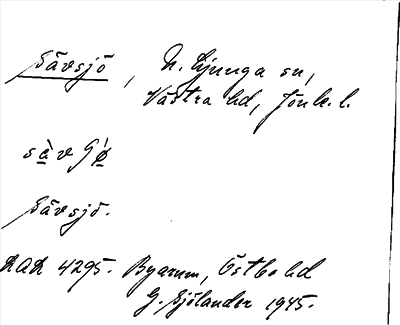 Sävsjö, N. Ljunga sn,
Västra hd, Jönk. l.
sä̀vʃø̍
Sävsjö.
RAÄ 4295. Byarum, Östbo hd
G. Sjölander 1945.